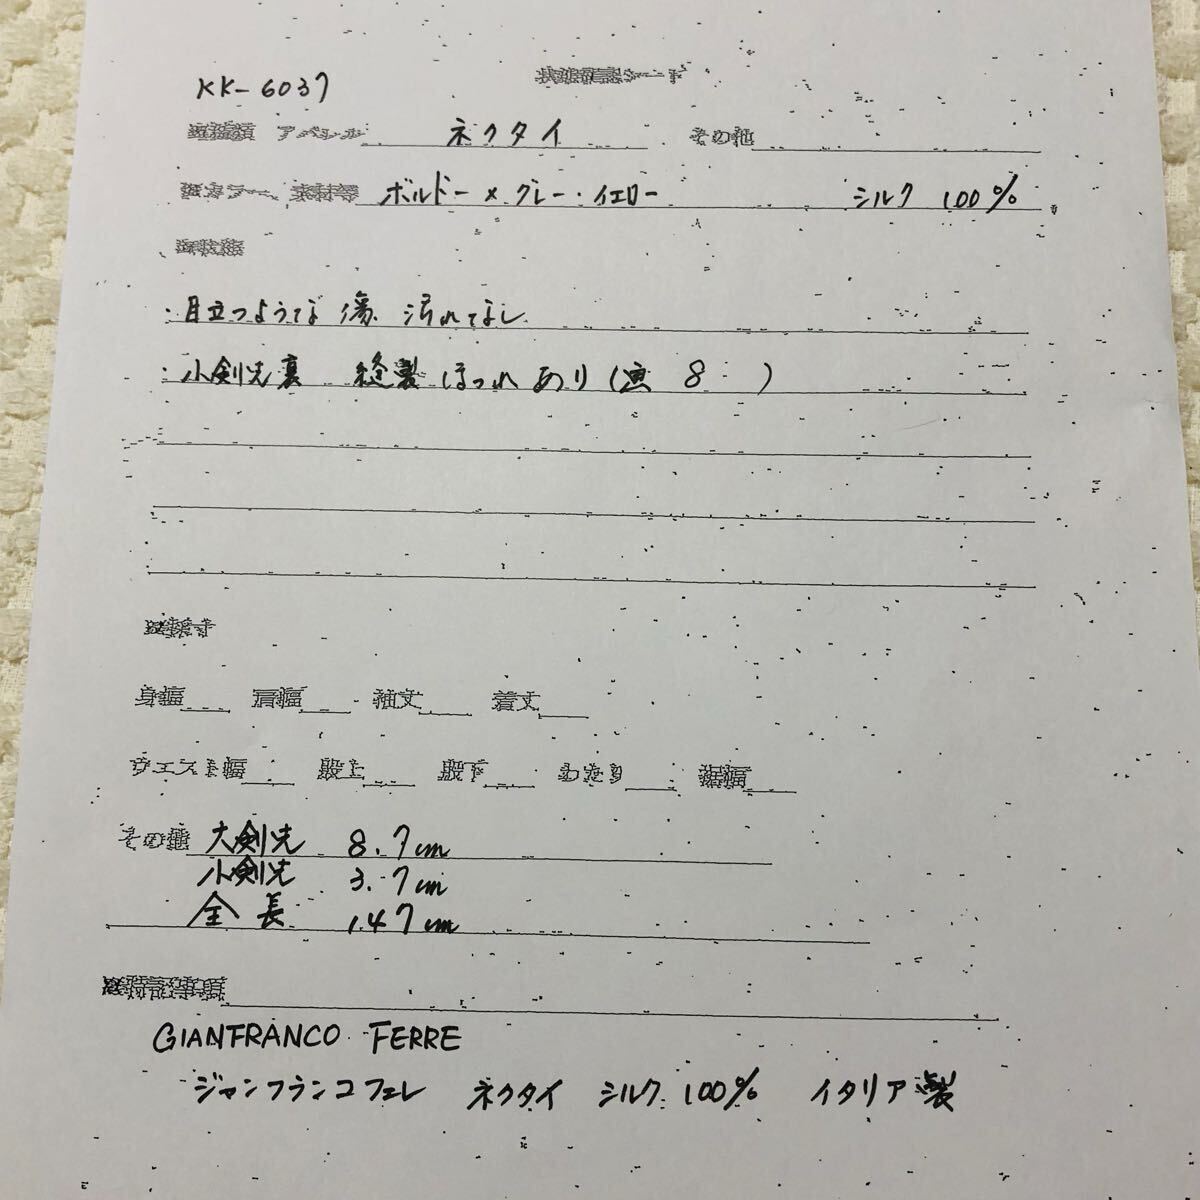 KK-6037
状態確認シート
アパレル ネクタイ その他
カラー、素材等 ボルドー×グレー・イエロー シルク 100%
状態
・目立つような傷 汚れてなし
・小剣先裏 縫製ほつれあり(画 8 )
身幅 肩幅 袖丈 着丈
ウエスト幅 股上 股下 わたり 裾幅
その他 大剣先 8.7cm
小剣先 3.7cm
全長 147cm
特記事項
GIANFRANCO FERRE
ジャンフランコフェレ ネクタイ シルク 100% イタリア製